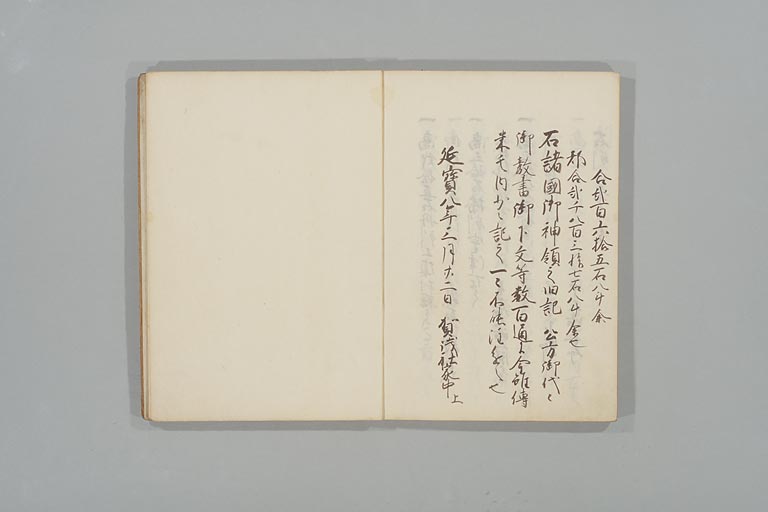 合弐百六拾五石八斗余
都合弐千八百三拾七石八斗余也
右諸国御神領之旧記 公方御代々
御教書御下文等数百通于今雖伝
来之内少々記之 一々不能注進
延寶八年三月廿二日 賀茂社家中 上